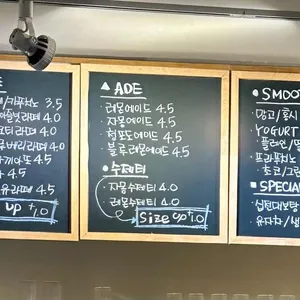 /카푸치노 3.5
라떼 4.0
티라떼 4.0
라떼 4.0
4.5
4.5
유라떼 4.5
UP +1.0
▲ ADE
레몬에이드 4.5
자몽에이드 4.5
청포도에이드 4.5
블루레몬에이드 4.5
● 수제티
자몽수제티 4.0
레몬수제티 4.0
Size up +1.0
● SMOO
망고/홍시
YOGURT
플레인/딸
프라푸치노
초코/그린
● SPECIAL
십전대보탕
유자차/생